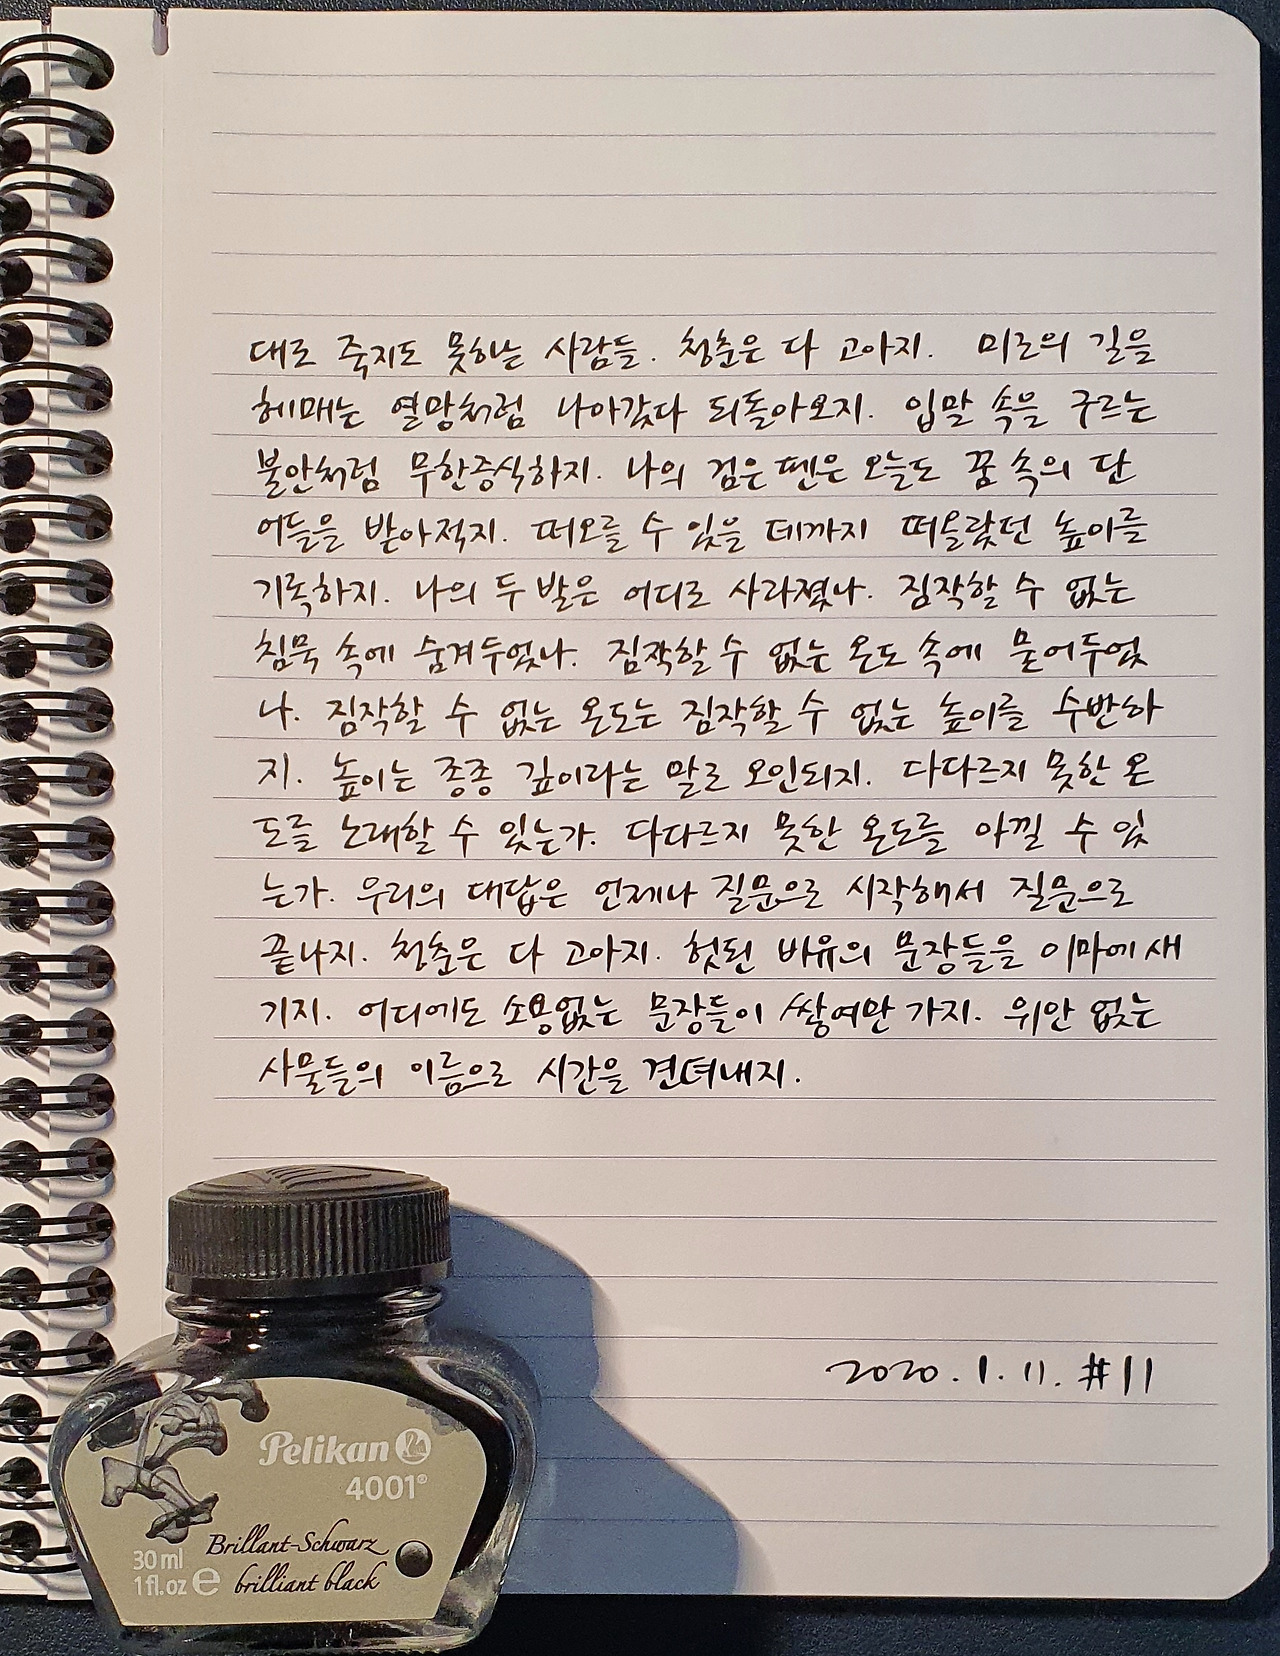 대로 죽지도 못하는 사람들. 청춘은 다 고아지. 미로의 길을
헤매는 열망처럼 나아갔다 되돌아오지. 입말 속을 구르는
불안처럼 무한증식하지. 나의 검은 펜은 오늘도 꿈 속의 단
어들을 받아적지. 떠오를 수 있을 데까지 떠올랐던 높이를
기록하지. 나의 두 발은 어디로 사라졌나. 짐작할 수 없는
침묵 속에 숨겨두었나. 짐작할 수 없는 온도 속에 묻어두었
나. 짐작할 수 없는 온도는 짐작할 수 없는 높이를 수반하
지. 높이는 종종 깊이라는 말로 오인되지. 다다르지 못한 온
도를 노래할 수 있는가. 다다르지 못한 온도를 아낄 수 있
는가. 우리의 대답은 언제나 질문으로 시작해서 질문으로
끝나지. 청춘은 다 고아지. 헛된 비유의 문장들을 이마에 새
기지. 어디에도 소용없는 문장들이 쌓여만 가지. 위안 없는
사물들의 이름으로 시간을 견뎌내지.
2020.1.11. #11
Pelikan
4001®
Brillant-Schwarz
brilliant black
30 ml
1 fl.oz e